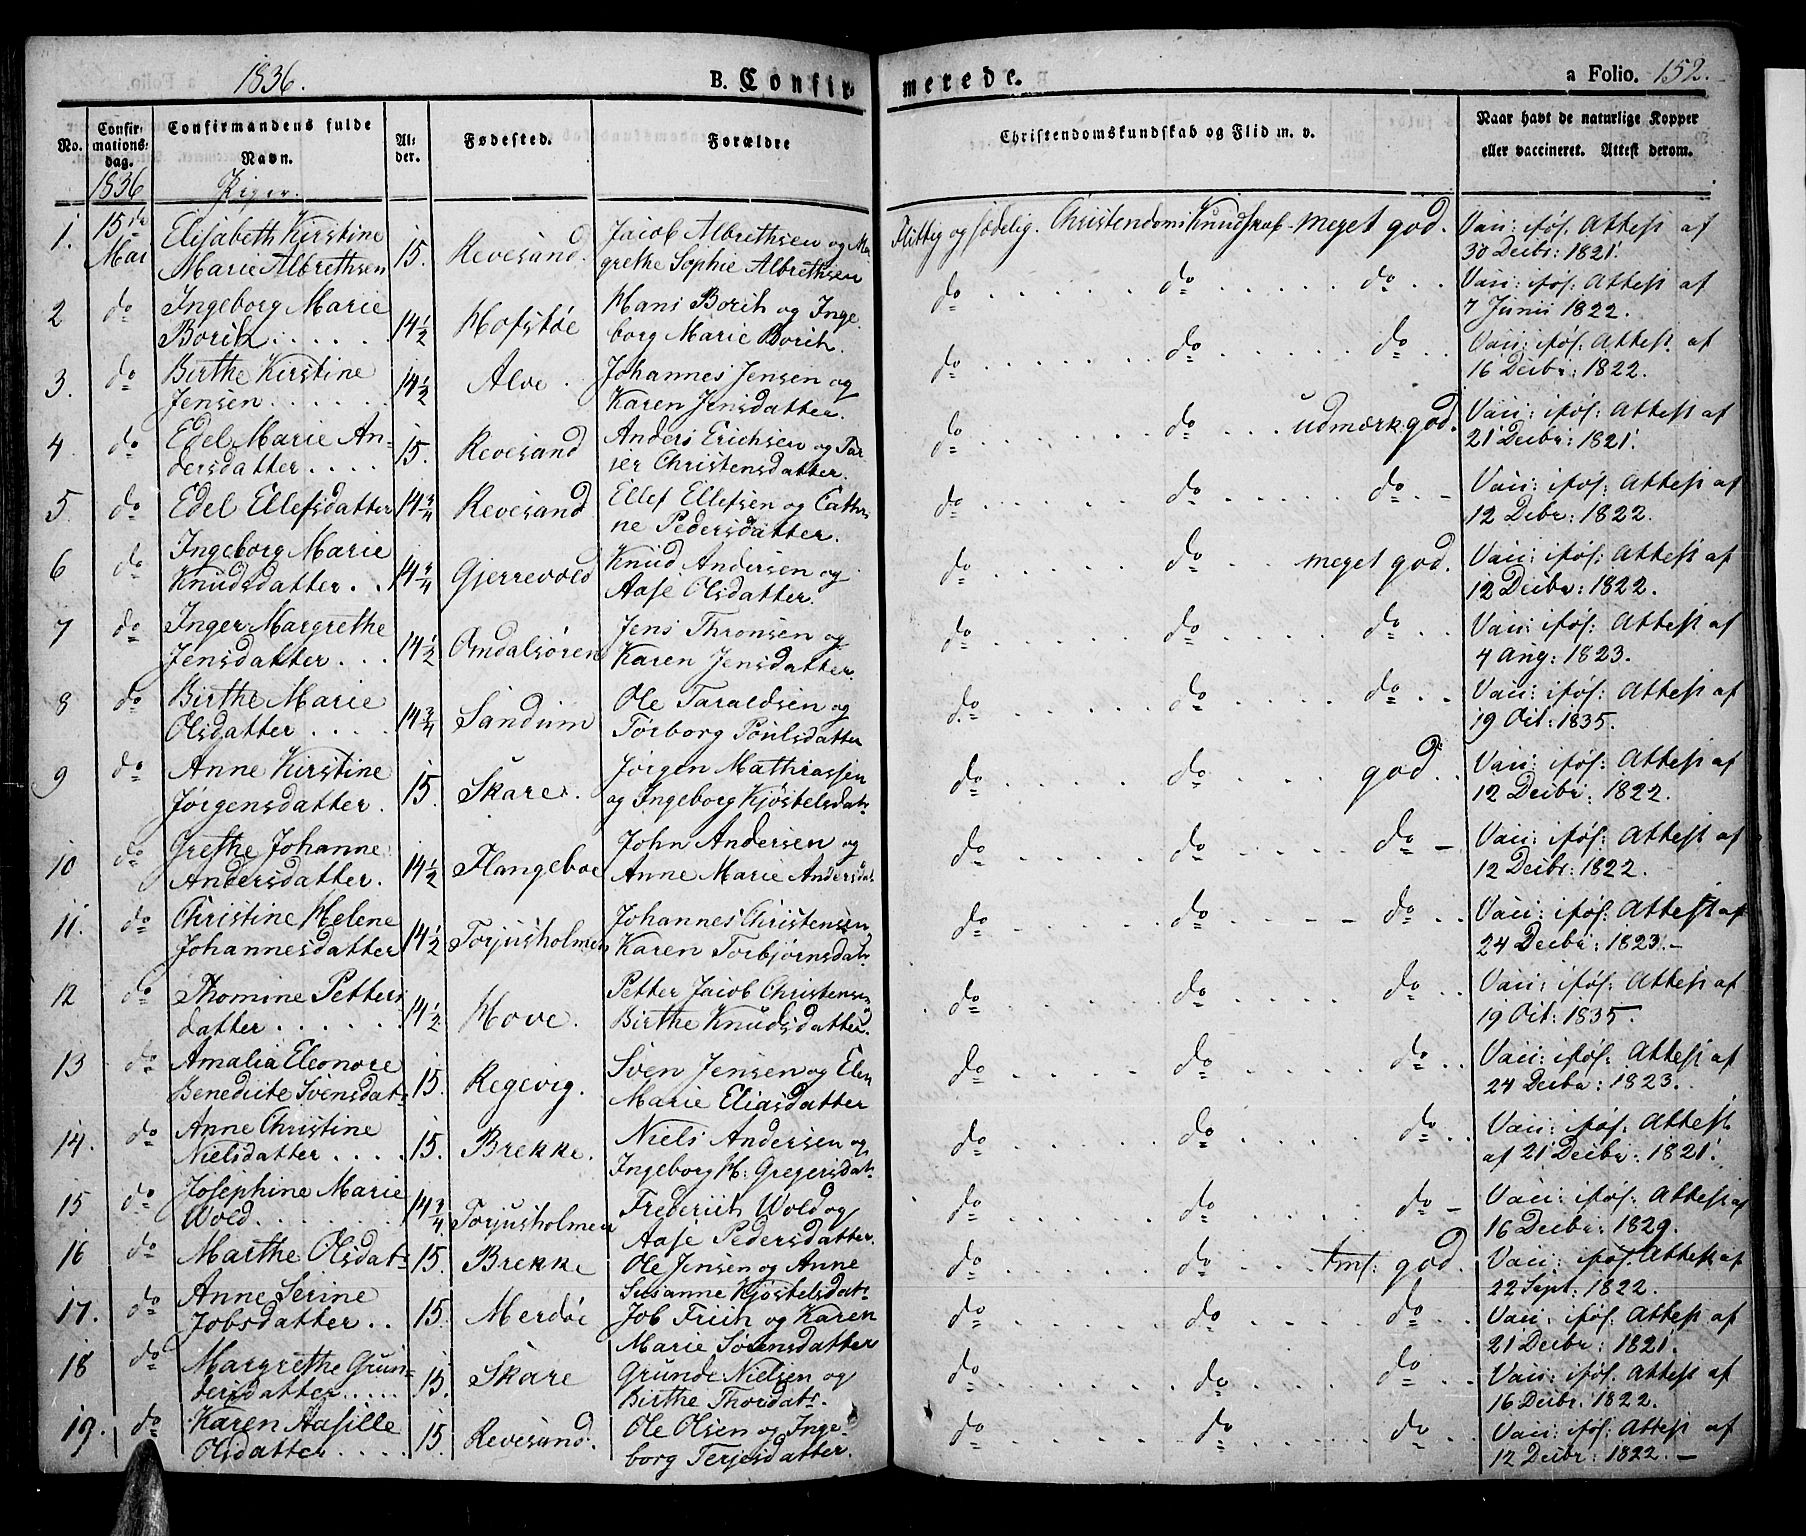 1836. B. Confirmerede. a Folio. 152.
No. Confirmationsdag. Confirmandens fulde Navn. Alder. Fødested. Forældre Christendomskundskab og Flid m. v. Naar havt de naturlige Kopper eller vaccineret. Attest derom.
1836 Piger.
1. 15de Elisabeth Kirstine 15. Revesand. Jacob Albrethsen og Ma- Flittig og sædelig. Christendoms Kundskab meget god. Vacc: iføl: Attest af
Mai Marie Albrethsen grethe Sophie Albrethsen 30 Decbr: 1821.
2 do Ingeborg Marie 14 1/2 Hofstøe Hans Borch og Inge- do do do Vacc: iføl: Attest af
Borch borg Marie Borch. 7 Junii 1822.
3. do Birthe Kirstine 14 1/2 Alve. Johannes Jensen og do do do Vacc: iføl: Attest af
Jensen Karen Jensdatter. 16 Decbr: 1822.
4 do Edel Marie An- 15. Revesand Anders Erichsen og Tar- do do udmærk: god. Vacc: iføl: Attest af
dersdatter jer Christensdatter. 21 Decbr: 1821.
5 do Edel Ellefsdatter 14 3/4 Revesand Ellef Ellefsen og Cathri- do do do Vacc: iføl: Attest af
ne Pedersdatter. 12 Debr: 1822.
6 do Ingeborg Marie 14 3/4 Gjerrevold Knud Andersen og do do meget god. Vacc: iføl: Attest af
Knudsdatter Aase Olsdatter. 12 Decbr: 1822.
7 do Inger Margrethe 14 1/2 Omdalsøren Jens Thronsen og do do do Vacc: iføl: Attest af
Jensdatter Karen Jensdatter. 4 Aug: 1823.
8 do Birthe Marie 14 3/4 Sandum Ole Taraldsen og do do do Vacc: iføl: Attest af
Olsdatter Torborg Poulsdatter 19 Oct: 1835.
9 do Anne Kirstine 15. Skare. Jørgen Mathiassen do do god. Vacc: iføl: Attest af
Jørgensdatter. og Ingeborg Kjøstelsdatr 12 Decbr: 1822.
10 do Grethe Johanne 14 1/2 Flangeboe John Andersen og do do do Vacc: iføl: Attest af
Andersdatter. Anne Marie Andersdat. 12 Decbr: 1822.
11. do Christine Helene 14 1/2 Torjusholmen Johannes Christensen do do do Vacc: iføl: Attest af
Johannesdatter Karen Torbjørnsdatr 24 Decbr: 1823.
12 do Thomine Petters 14 1/2 Hove. Petter Jacob Christensen do do do Vacc: iføl: Attest af
datter Birthe Knudsdatter. 19 Oct: 1835.
13 do Amalia Eleonore 15. Regevig. Sven Jensen og Elen do do do Vacc: iføl: Attest af
Benedicte Svensdatr Marie Eliasdatter 24 Decbr: 1823.
14. do Anne Christine 15. Brekke. Niels Andersen og do do do Vacc: iføl: Attest
Nielsdatter Ingeborg H: Gregersdatr af 21 Decbr: 1821.
15 do Josephine Marie 14 3/4 Torjusholmen Frederich Wold og do do do Vacc: iføl: Attest af
Wold Aase Pedersdatter. 16 Decbr: 1829.
16 do Marthe Olsdatr 15. Brekke Ole Jensen og Anne do do tml: god. Vacc: iføl: Attest af
Susanne Kjøstelsdatr 22 Sept: 1822.
17. do Anne Serine 15. Merdøe Job Frich og Karen do do do Vacc: iføl: Attest af
Jobsdatter Marie Sørensdatter 21 Decbr: 1821.
18 do Margrethe Grun- 15. Skare Grunde Nielsen og do do do Vacc: iføl: Attest af
desdatter Birthe Thordatr. 16 Decbr: 1822.
19. do Karen Aasille 15 Revesand. Ole Olsen og Inge- do do do Vacc: iføl: Attest af
Olsdatter borg Terjesdatter. 12 Decbr: 1822.